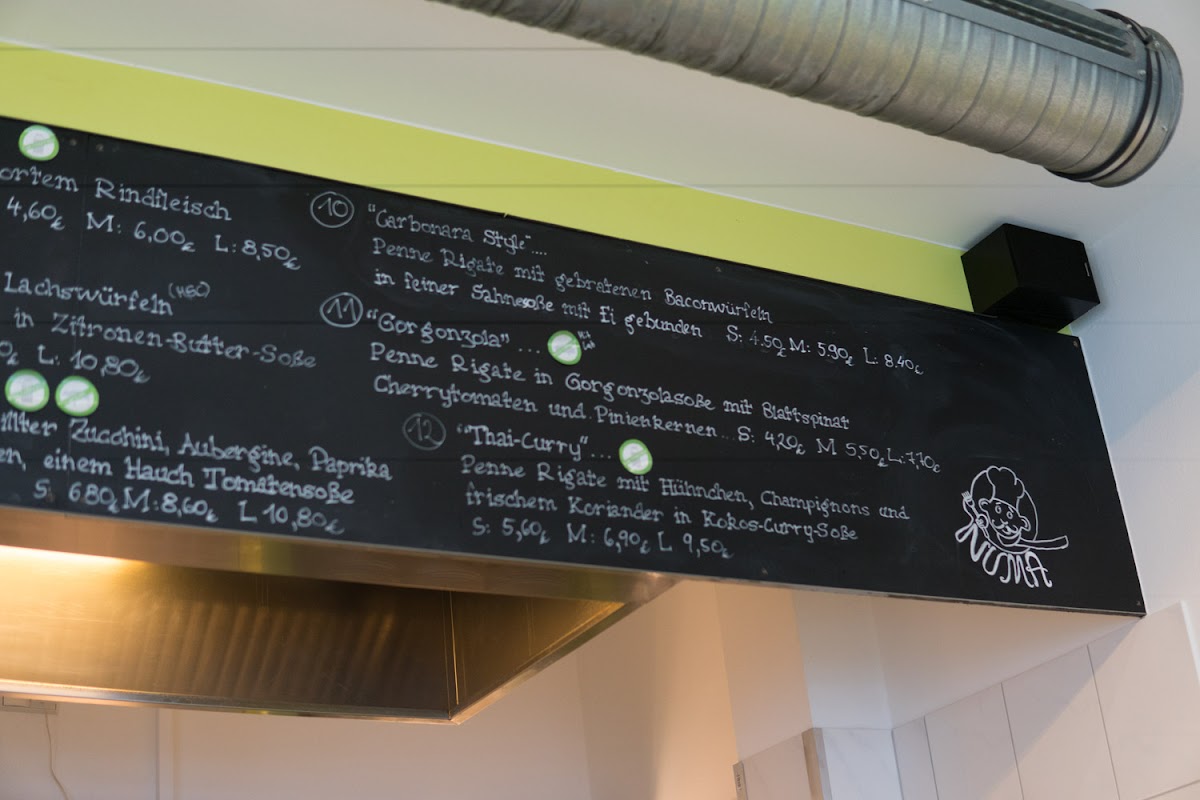 ortem Rindfleisch
4,60€ M: 6,00€ L: 8,50€
Lachswürfeln
in Zitronen-Butter-Soße
L: 10,80€
Zucchini, Aubergine, Paprika
en, einem Hauch Tomatensoße
S: 6.80€ M: 8,60€ L 10,80€
10 "Carbonara Style"....
Penne Rigate mit gebratenen Baconwürfeln
in feiner Sahnesoße mit Ei gebunden S: 4.50€ M: 5.90€ L: 8.40€
11 "Gorgonzola" ...
Penne Rigate in Gorgonzolasoße mit Blattspinat
Cherrytomaten und Pinienkernen... S: 4,20€ M 5,50€ L: 7,10€
12 "Thai-Curry"...
Penne Rigate mit Hühnchen, Champignons und
frischem Koriander in Kokos-Curry-Soße
S: 5,60€ M: 6,90€ L 9,50€
NUMA